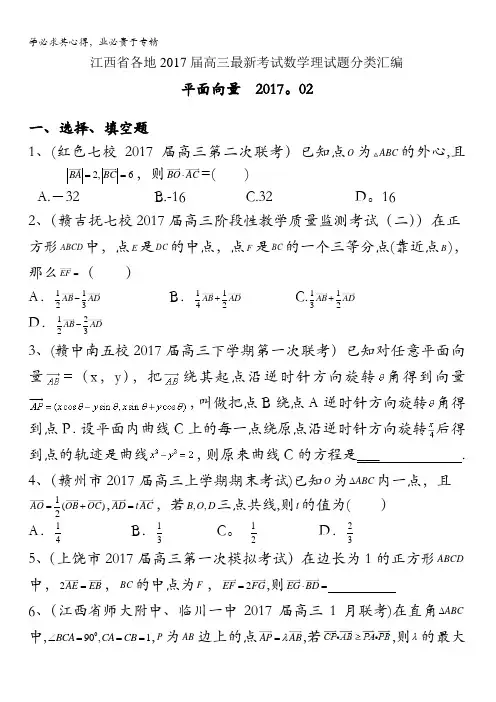 学必求其心得,业必贵于专精
江西省各地2017届高三最新考试数学理试题分类汇编
平面向量 2017。02
一、选择、填空题
1、(红色七校2017届高三第二次联考)已知点O为△ABC的外心,且
|BA|=2,|BC|=6,则BO·AC=( )
A.-32 B.-16 C.32 D。16
2、(赣吉抚七校2017届高三阶段性教学质量监测考试(二))在正
方形ABCD中,点E是DC的中点,点F是BC的一个三等分点(靠近点B),
那么EF=( )
A.1/2AB-1/3AD B.1/4AB+1/2AD C.1/3AB+1/2AD
D.1/2AB-2/3AD
3、(赣中南五校2017届高三下学期第一次联考)已知对任意平面向
量AB=(x,y),把AB绕其起点沿逆时针方向旋转θ角得到向量
AP=(xcosθ-ysinθ,xsinθ+ycosθ),叫做把点B绕点A逆时针方向旋转θ角得
到点P.设平面内曲线C上的每一点绕原点沿逆时针方向旋转π/4后得
到点的轨迹是曲线x²-y²=2,则原来曲线C的方程是 .
4、(赣州市2017届高三上学期期末考试)已知O为ΔABC内一点,且
AO=1/2(OB+OC),AD=tAC,若B,O,D三点共线,则t的值为( )
A.1/4 B.1/3 C。1/2 D.2/3
5、(上饶市2017届高三第一次模拟考试)在边长为1的正方形ABCD
中,2AE=EB,BC的中点为F,EF=2FG,则EG·BD=
6、(江西省师大附中、临川一中2017届高三1月联考)在直角ΔABC
中,∠BCA=90⁰,CA=CB=1,P为AB边上的点AP=λAB,若CP•AB≥PA•PB,则λ的最大